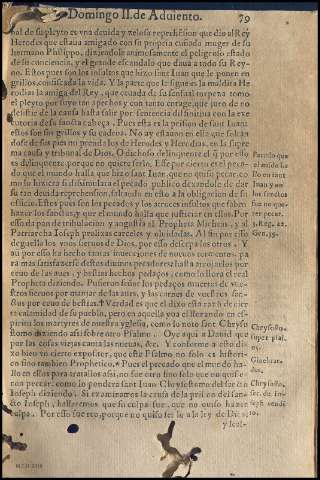 Domingo II. de Aduiento. 79
nal de su pleyto es vna deuida y zelosa reprehension que dio al Rey
Herodes que estaua amigado con su propria cuñada muger de su
hermano Philippo, diziendole animosamente el peligroso estado
de su conciencia, y el grande escandalo que daua a todo su Rey-
no. Estos pues son los insultos que hizo sant Iuan que le ponen en
grillos, confiscada la vida. Y la parte que le sigue es la maldita He
rodias la amiga del Rey, que ceuada de su sensual torpeza toma
el pleyto por suyo tan apechos y con tanto corage, que juro de no
desistir de la causa hasta salir por sentencia difinitiua con la exe
cutoria de su sancta cabeça. Pues esta es la prision de sant Iuan,
estos son sus grillos y su cadena. No ay estauan en ella que soltan
dose de sus pies no prenda los de Herodes y Herodias, en la supre
ma causa y tribunal de Dios. O dichoso delinquente al que por ello
es delinquente porque no quiere serlo. Esse por cierto es el peca-
do que el mundo halla que hizo sant Iuan, que no quiso pecar: co
mo se hiziera si dissimulara el pecado publico dexandole de dar
su tan deuida reprehension, faltando en esto a la obligacion de su
officio. Estos pues son los pecados y los atroces insultos que saben
hazer los sanctos, y que el mundo halla que justiciar en ellos. Por
esso da pan de tribulacion y angustia al Propheta Micheas, y al
Patriarcha Ioseph prolixas carceles y aldabadas. Al fin por esso
deguella los vnos sieruos de Dios, por esso desierra los otros. Y
aun por esso ha hecho tantas inuenciones de nueuos tormentos, pa
ra mas satisfazerse destos diuinos presidentes hasta arrojarlos por
ceuo de las aues, y bestias hechos pedaços, como lo llora el real
Propheta diziendo. Pusieron señor los pedaços muertos de vue-
stros sieruos por manjar de las aues, y las carnes de vuestros san-
ctos por ceuo de bestias. Verdad es que el dixo esto razon de cier
ta calamidad de su pueblo, pero en aquella yua el llorando en es-
piritu los martyres de nuestra yglesia, como lo noto sant Chryso
stomo diziendo assi sobre otro Psalmo. Oye aqui a Dauid que
por las cosas viejas canta las nueuas, &c. Y conforme a esto di-
xo bien vn cierto expositor, que este Psalmo no solo es histori-
co sino tambien Prophetico. Pues el pecado que el mundo ha-
lla en ellos para tratallos assi, no fue otro sino solo que no quisie-
ron pecar: como lo pondera sant Iuan Chrysostomo del sancto
Ioseph diziendo. Si examinamos la causa de la prision del san-
cto Ioseph, hallaremos que su culpa fue, que no quiso hazer
culpa. Por esso fue reo, porque no quiso ser lo a la ley de Dios,
y leal-
Pecado que
el mũdo ha
lla en sant
Iuan y en
los sanctos
fue no que-
rer pecar.
3. Reg. 22.
Gen. 39.
Chrysosto.
super psal.
Chrysosto.
ser. de Io-
seph vendi
to.